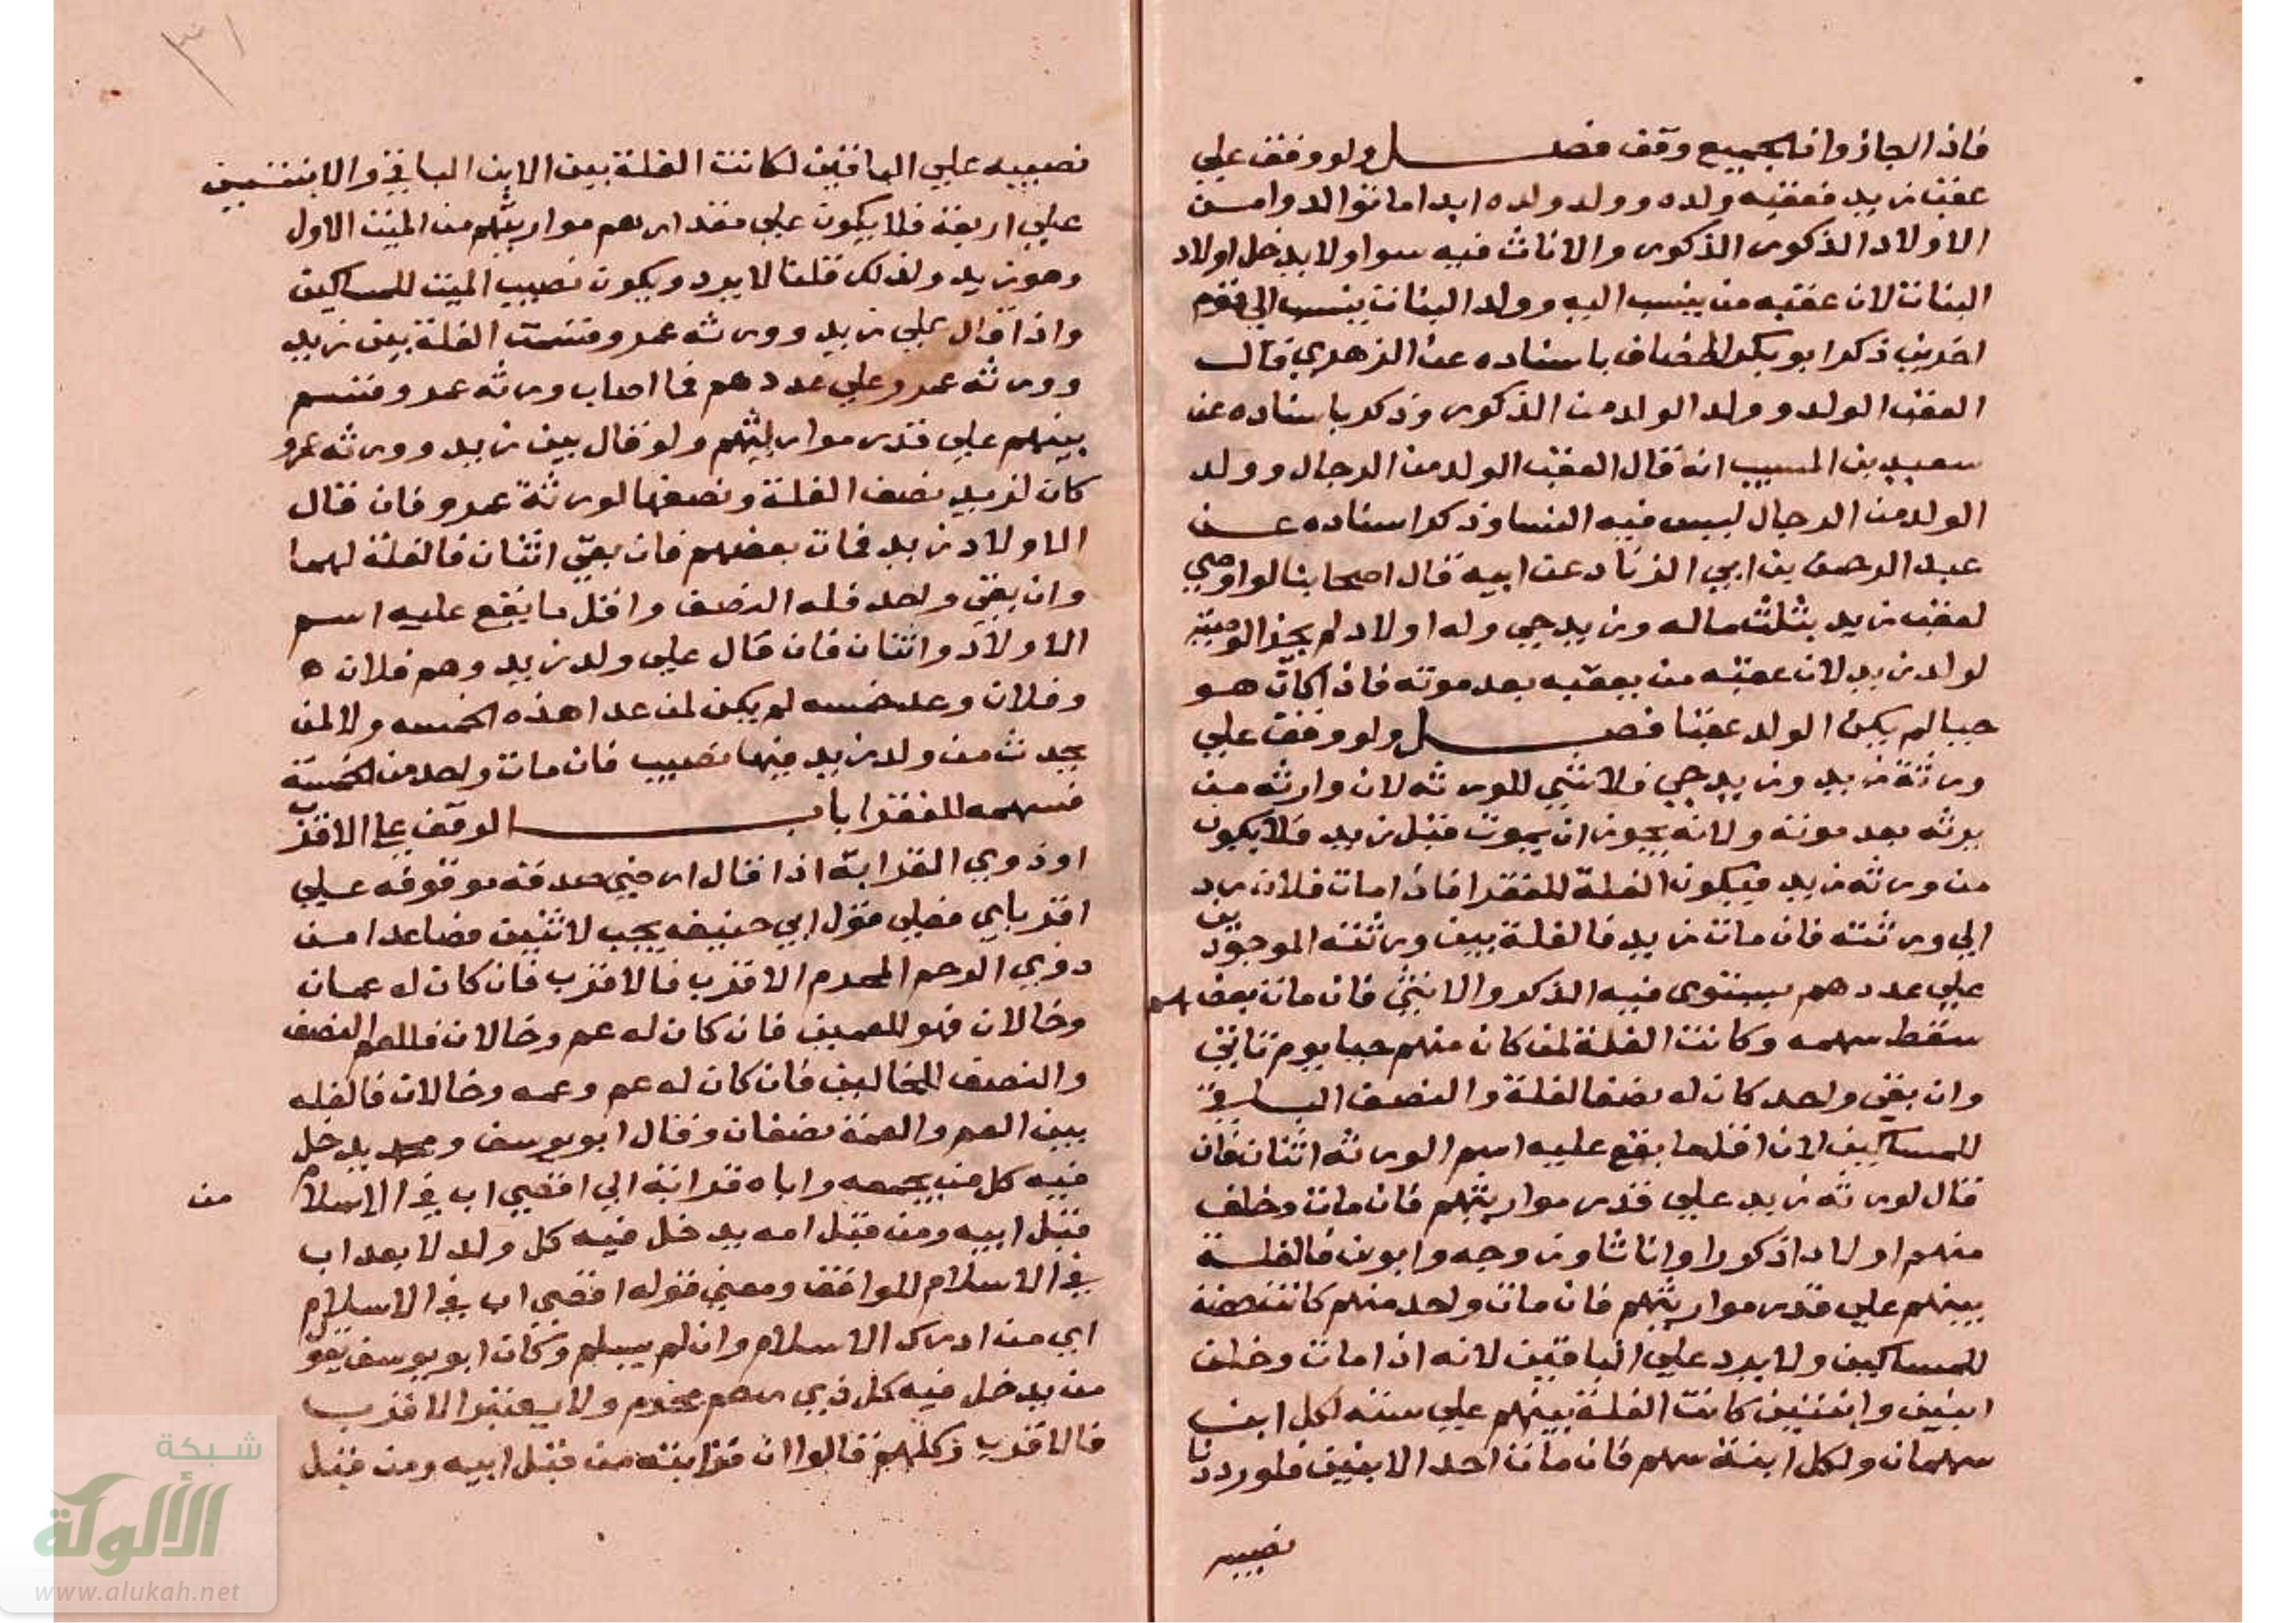 فاذا الجاز وانه لجميع وقف فصل ولو وقف علي
عقب زيد فعقبه ولده وولد ولده ابدا ما توالدوا من
الاولاد الذكور الذكور والاناث فيه سوا ولا يدخل اولاد
البنات لان عقبه من ينسب اليه وولد البنات ينسب الي قوم
اخرين ذكر ابو بكر الخصاف باسناده عن الزهري قال
العقب الولد وولد الولد من الذكور وذكر باسناده عن
سعيد بن المسيب انه قال العقب الولد من الرجال وولد
الولد من الرجال ليس فيه النسا وذكر اسناده عن
عبد الرحمن بن ابي الزناد عن ابيه قال اصحابنا لو اوصي
لعقب زيد بثلث ماله وزيد حي وله اولاد لم يجز الوصية
لولد زيد لان عقبه من يعقبه بعد موته فاذا كان هو
حيا لم يكن الولد عقبا فصل ولو وقف علي
ورثة زيد وزيد حي فلا شي للورثه لان وارثه من
يرثه بعد موته ولانه يجوز ان يموت قبل زيد فلا يكون
من ورثه زيد فيكون الغلة للفقرا فاذا مات فلان رد
الي ورثته فان مات زيد فالغلة بين ورثته الموجودين
علي عددهم يستوي فيه الذكر والانثي فان مات بعضهم
سقط سهمه وكانت الغلة لمن كان منهم حيا يوم تاتي
وان بقي واحد كان له نصف الغلة والنصف الباقي
للمساكين لان اقل ما يقع عليه اسم الورثه اثنان فان
قال لورثه زيد علي قدر مواريثهم فان مات وخلف
منهم اولادا ذكورا واناثا وزوجه وابوين فالغلة
بينهم علي قدر مواريثهم فان مات واحد منهم كانت حصته
للمساكين ولا يرد علي الباقين لانه اذا مات وخلف
ابنين وابنتين كانت الغلة بينهم علي سته لكل ابن
سهمان ولكل ابنة سهم فان مات احد الابنين فلو رددنا
نصيبه
٣١
نصيبه علي الباقين لكانت الغلة بين الابن الباقي والابنتين
علي اربعة فلا يكون علي مقدار هم مواريثهم من الميت الاول
وهو زيد ولذلك قلنا لا يرد ويكون نصيب الميت للمساكين
واذا قال علي زيد وورثه عمرو قسمت الغلة بين زيد
وورثه عمرو علي عددهم فما اصاب ورثه عمرو قسم
بينهم علي قدر مواريثهم ولو قال بين زيد وورثه عمرو
كان لزيد نصف الغلة ونصفها لورثة عمرو فان قال
الاولاد زيد فمات بعضهم فان بقي اثنان فالغلة لهما
وان بقي واحد فله النصف واقل ما يقع عليه اسم
الاولاد اثنان فان قال علي ولد زيد وهم فلان
وفلان وعد خمسه لم يكن لمن عدا هذه الخمسه ولا لمن
يحدث من ولد زيد فيها نصيب فان مات واحد من الخمسة
فسهمه للفقرا باب الوقف علي الاقرب
او ذوي القرابة اذا قال ارضي صدقه موقوفه علي
اقرباي فعلي قول ابي حنيفه يجب لاثنين فصاعدا من
ذوي الرحم المحرم الاقرب فالاقرب فان كان له عمان
وخالان فهو للعمين فان كان له عم وخالان فللعم النصف
والنصف للخالين فان كان له عم وعمه وخالان فالغله
بين العم والعمة نصفان وقال ابو يوسف ومحمد يدخل
فيه كل من يجمعه واياه قرابة الي اقصي اب في الاسلام
من
قبل ابيه ومن قبل امه يدخل فيه كل ولد لا بعد اب
في الاسلام للواقف ومعني قوله اقصي اب في الاسلام
اي من ادرك الاسلام وان لم يسلم وكان ابو يوسف يقو
من يدخل فيه كل ذي رحم محرم ولا يعتبر الاقرب
فالاقرب وكلهم قالوا ان قرابته من قبل ابيه ومن قبل
شبكة
الألوكة
www.alukah.net